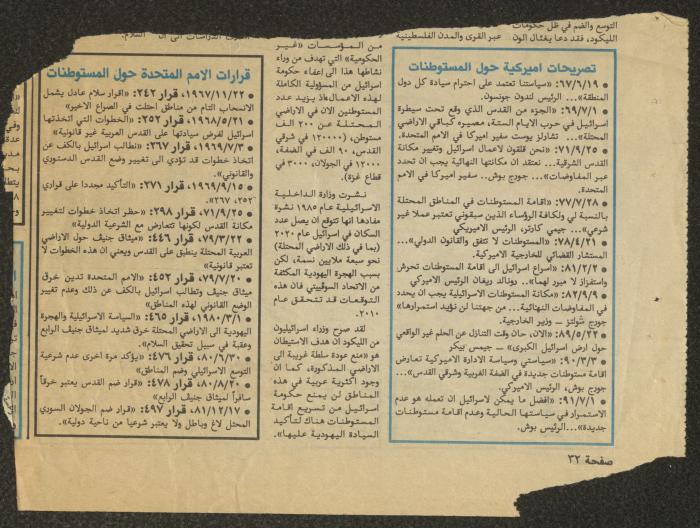 التوسع والضم في ظل حكومات
الليكود، فقد دعا يغثال الون
عبر القرى والمدن الفلسطينية
تصريحات اميركية حول المستوطنات
● ٦٧/٦/١٩: «سياستنا تعتمد على احترام سيادة كل دول
المنطقة»... الرئيس لندون جونسون.
● ٦٩/٧/١: «الجزء من القدس الذي وقع تحت سيطرة
اسرائيل في حرب الايام الستة، مصيره كباقي الاراضي
المحتلة»... تشارلز يوست سفير اميركا في الامم المتحدة.
● ٧١/٩/٢٥: «نحن قلقون لاعمال اسرائيل وتغيير مكانة
القدس الشرقية... نعتقد ان مكانتها النهائية يجب ان تحدد
عبر المفاوضات»... جورج بوش.. سفير اميركا في الامم
المتحدة.
● ٧٧/٧/٢٨: «اقامة المستوطنات في المناطق المحتلة
بالنسبة لي ولكافة الرؤساء الذين سبقوني تعتبر عملا غير
شرعي»... جيمي كارتر، الرئيس الاميركي
● ٧٨/٤/٢١: «المستوطنات لا تتفق والقانون الدولي»...
المستشار القضائي للخارجية الاميركية.
● ٨١/٢/٢: «اسراع اسرائيل الى اقامة المستوطنات تحرش
واستفزاز لا مبرر لهما».. رونالد ريغان الرئيس الاميركي
● ٨٢/٩/٩: «مكانة المستوطنات الاسرائيلية يجب ان يحدد
في المفاوضات النهائية... من جهتنا لن نؤيد استمرارها»
جورج شولتز ــ وزير الخارجية.
● ٨٩/٥/٢٢: «الان، حان وقت التنازل عن الحلم غير الواقعي
حول ارض اسرائيل الكبرى» ــ جيمس بيكر
● ٩٠/٣/٣: «سياستي وسياسة الادارة الاميركية تعارض
اقامة مستوطنات جديدة في الضفة الغربية وشرقي القدس»...
جورج بوش، الرئيس الاميركي.
● ٩١/٧/١: «افضل ما يمكن لاسرائيل ان تعمله هو عدم
الاستمرار في سياستها الحالية وعدم اقامة مستوطنات
جديدة»...الرئيس بوش.
صفحة ٣٢
من المؤسسات «غير
الحكومية» التي تهدف من وراء
نشاطها هذا الى إعفاء حكومة
اسرائيل من المسؤولية الكاملة
لهذه الاعمال
المستوطنين الان في الاراضي
المحتلة عن ٢٠٠ الف
مستوطن، (١٢٠٠٠٠ في شرقي
القدس، ٩٠ الف في الضفة،
١٢٠٠٠ في الجولان، ٣٠٠٠ في
قطاع غزة).
نشرت وزارة الداخلية
الاسرائيلية عام ١٩٨٥ نشرة
مفادها انها تتوقع ان يصل عدد
السكان في اسرائيل عام ٢٠٢٠
(بما في ذلك الاراضي المحتلة)
نحو سبعة ملايين نسمة، لكن
بسبب الهجرة اليهودية المكثفة
من الاتحاد السوفييتي فان هذه
التوقعات قد تتحقق عام
٢٠١٠.
لقد صرح وزراء اسرائيليون
من الليكود ان هدف الاستيطان
هو «منع عودة سلطة غريبة الى
الاراضي المذكورة، كما ان
وجود اكثرية عربية في هذه
المناطق لن يمنع حكومة
اسرائيل من تسريع اقامة
المستوطنات هناك لتأكيد
السيادة اليهودية عليها».
قرارات الامم المتحدة حول المستوطنات
● ١٩٦٧/١١/٢٢، قرار ٢٤٢: «اقرار سلام عادل يشمل
الانسحاب التام من مناطق احتلت في الصراع الاخير»
● ١٩٦٨/٥/٢١، قرار ٢٥٢: «الخطوات التي اتخذتها
اسرائيل لفرض سيادتها على القدس العربية غير قانونية»
● ١٩٦٩/٧/٣، قرار ٢٦٧: «نطالب اسرائيل بالكف عن
اتخاذ خطوات قد تؤدي الى تغيير وضع القدس الدستوري
والقانوني».
● ١٩٦٩/٩/١٥، قرار ٢٧١: «التأكيد مجددا على قراري
٢٥٢، ٢٦٧».
● ٧١/٩/٢٥، قرار ٢٩٨: «حظر اتخاذ خطوات لتغيير
مكانة القدس لكونها تتعارض مع الشرعية الدولية»
● ٧٩/٣/٢٢، قرار ٤٤٦: «ميثاق جنيف حول الاراضي
العربية المحتلة ينطبق على القدس ويعني ان هذه الخطوات لا
تعتبر قانونية»
● ٧٩/٧/٢٠، قرار ٤٥٢: «الامم المتحدة تدين خرق
ميثاق جنيف وتطالب اسرائيل بالكف عن ذلك وعدم تغيير
الوضع القانوني لهذه المناطق»
● ١٩٨٠/٣/١، قرار ٤٦٥: «السياسة الاسرائيلية والهجرة
اليهودية الى الاراضي المحتلة خرق شديد لميثاق جنيف الرابع
وعقبة في سبيل تحقيق السلام».
● ٨٠/٦/٣٠، قرار ٤٧٦: «يؤكد مرة اخرى عدم شرعية
التوسع الاسرائيلي وضم المناطق»
● ٨٠/٨/٢٠، قرار ٤٧٨: «قرار ضم القدس يعتبر خرقاً
سافراً لميثاق جنيف الرابع»
● ٨١/١٢/١٧، قرار ٤٩٧: «قرار ضم الجولان السوري
المحتل لاغ وباطل ولا يعتبر شرعيا من ناحية دولية».